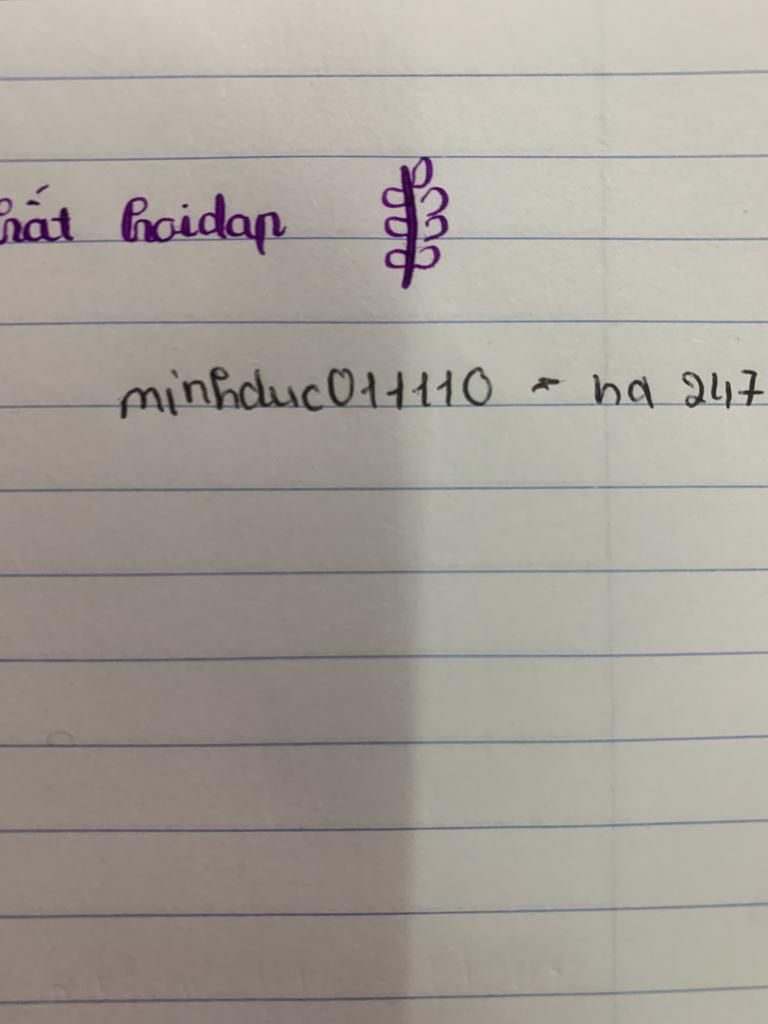 hất hoidap
minhduc011110 - hd 247